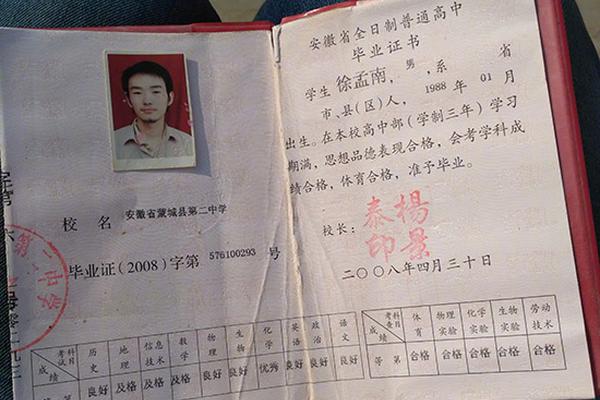 校名 安徽省蒙城县第二中学
毕业证(2008)字第 576100293 号
考试科目 历史 地理 信息技术 数学 物理 生物 化学 英语 政治 语文
成绩 良好 及格 及格 及格 良好 良好 优秀 良好 良好 良好
安徽省全日制普通高中
毕业证书
学生 徐孟南，男，系 省
市、县(区)人，1988 年 01 月
出生。在本校高中部(学制三年)学习
期满，思想品德表现合格，会考学科成
绩合格，体育合格，准予毕业。
校长：
楊景泰印
二〇〇八年四月三十日
考查科目 体育 物理实验 化学实验 生物实验 劳动技术
成绩等第 合格 合格 合格 合格 合格